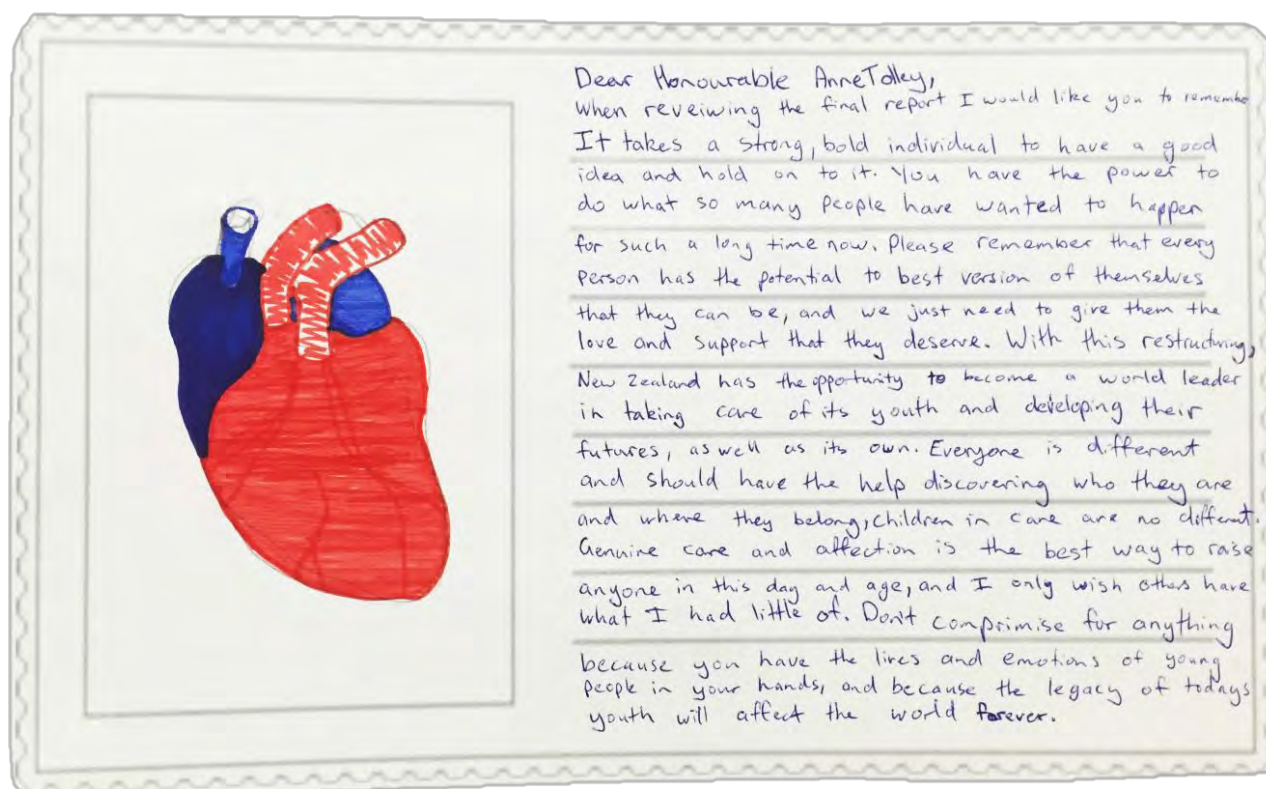 Dear Honourable Anne Tolley,
When reveiwing the final report I would like you to remember
It takes a strong, bold individual to have a good
idea and hold on to it. You have the power to
do what so many people have wanted to happen
for such a long time now. Please remember that every
person has the potential to best version of themselves
that they can be, and we just need to give them the
love and support that they deserve. With this restructuring,
New Zealand has the opportunity to become a world leader
in taking care of its youth and developing their
futures, as well as its own. Everyone is different
and should have the help discovering who they are
and where they belong, children in care are no different.
Genuine care and affection is the best way to raise
anyone in this day and age, and I only wish others have
what I had little of. Don't comprimise for anything
because you have the lives and emotions of young
people in your hands, and because the legacy of todays
youth will affect the world forever.